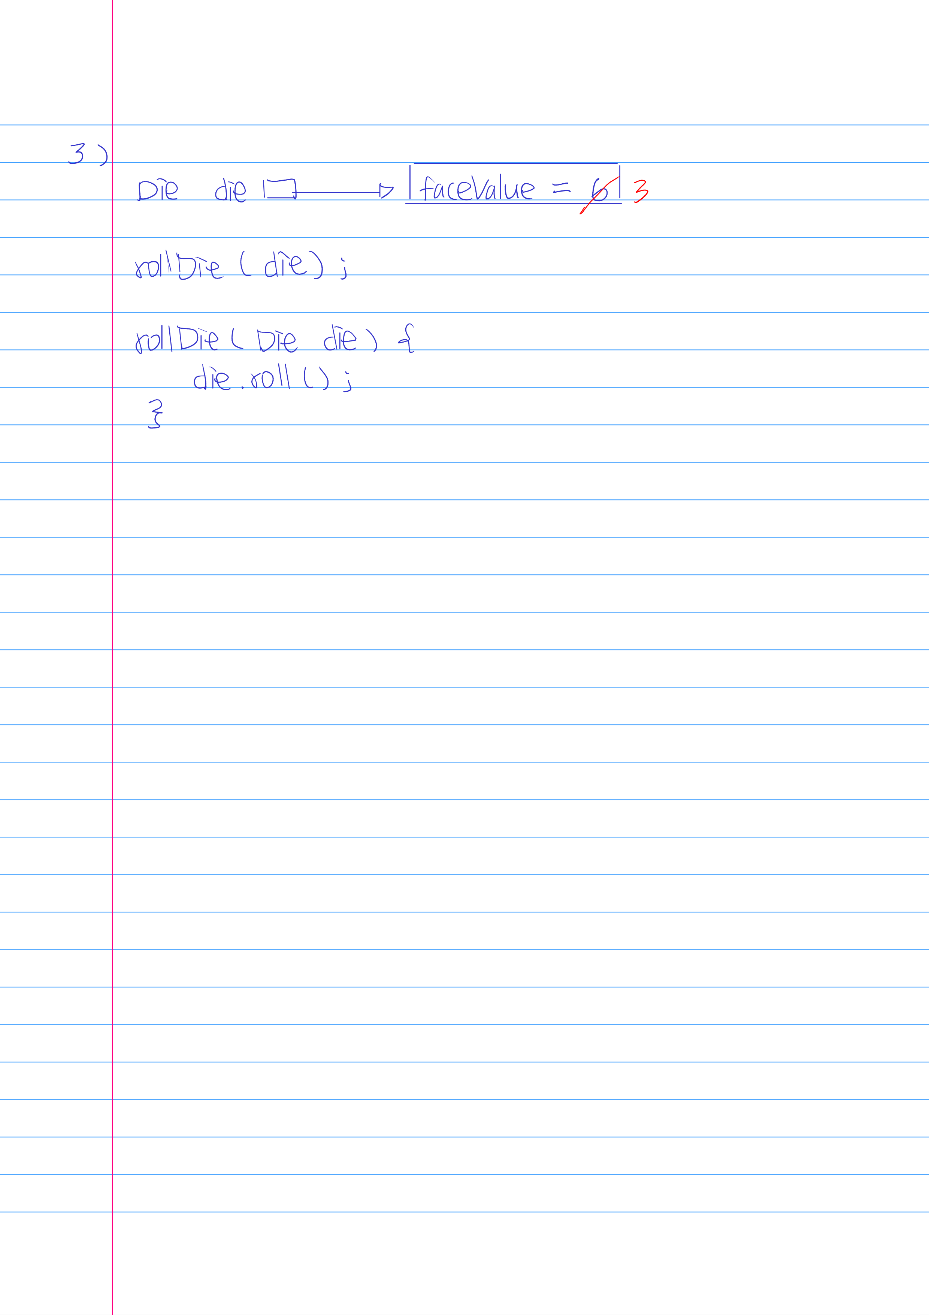 3)
Die die faceValue = 6 3
rollDie (die) ;
rollDie ( Die die) {
die.roll () ;
}